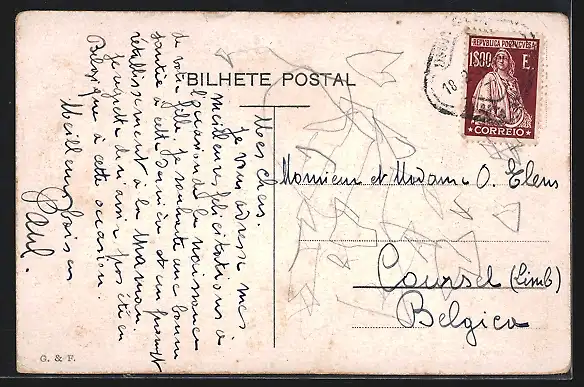 BILHETE POSTAL
Mes chers.
Je vous adresse mes
meilleures félicitations à
l'occasion de la naissance
de votre fille. Je souhaite une bonne
santée à cette dernière et un prompt
rétablissement à la Maman.
Je regrette de n'avoir pas été en
Belgique à cette occasion.
Meilleurs
Paul.
G. & F.
REPUBLICA PORTUGUESA
1$00 E.
CORREIO
18
Monsieur et Madame O. Elens
Coursel (Limb)
Belgica